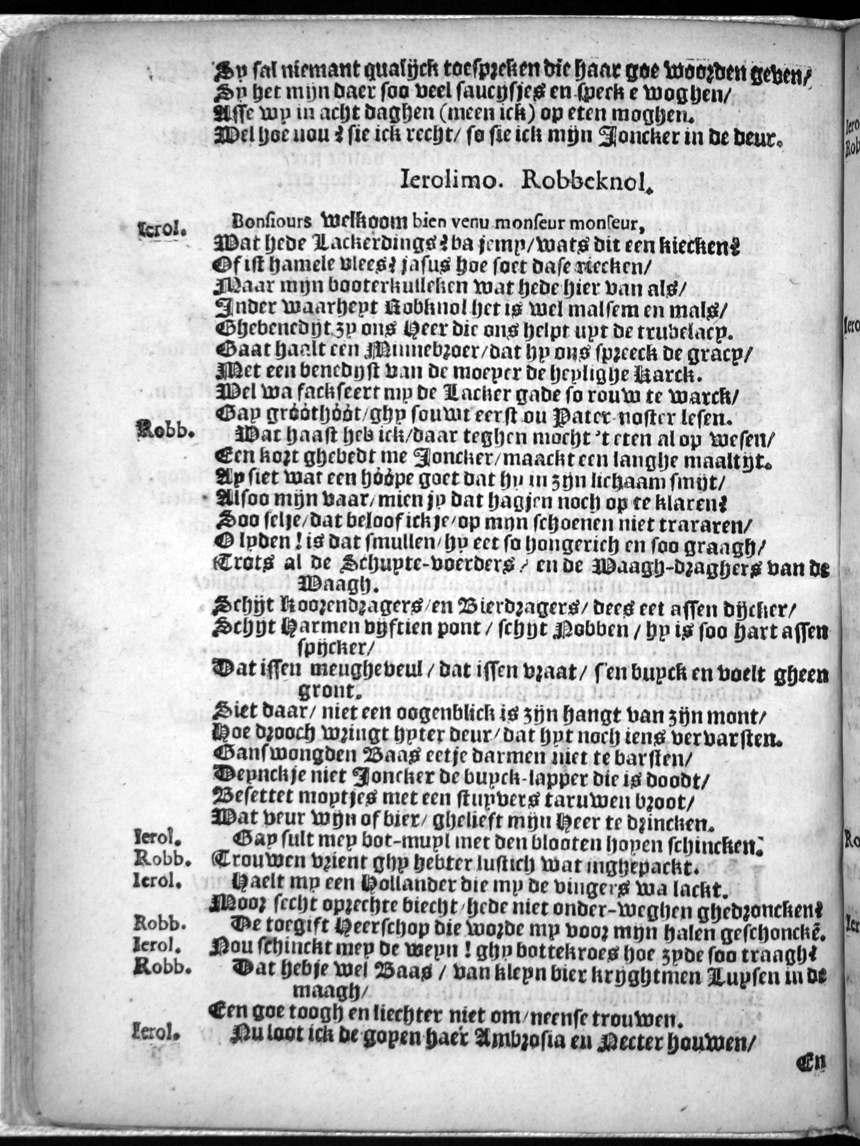 Sy sal niemant qualijck toespreken die haar goe woorden geven/
Sy het mijn daer soo veel saucijsjes en speck e woghen/
Asse wy in acht daghen (meen ick) op eten moghen.
Wel hoe nou? sie ick recht/ so sie ick mijn Joncker in de deur.
Ierolimo. Robbeknol.
Ierol. Bonsiours welkoom bien venu monseur monseur,
Wat hede Lackerdings? ba jemy/wats dit een kiecken?
Of ist hamele vlees? jasus hoe soet dase riecken/
Maar mijn booterkulleken wat hede hier van als/
Inder waarheyt Robknol het is wel malsem en mals/
Ghebenedijt zy ons Heer die ons helpt uyt de trubelacy.
Gaat haalt een Minnebroer/dat hy ons spreeck de gracy/
Met een benedijst van de moeyer de heylighe Karck.
Wel wa fackseert my de Lacker gade so rouw te warck/
Gay gróóthóót/ghy souwt eerst ou Pater noster lesen.
Robb. Wat haast heb ick/daar teghen mocht 't eten al op wesen/
Een kort ghebedt me Joncker/maackt een langhe maaltijt.
Ay siet wat een hóópe goet dat hy in zijn lichaam smijt/
Alsoo mijn vaar/mien jy dat hagjen noch op te klaren?
Soo selje/dat beloof ick je/op mijn schoenen niet trararen/
O lyden! is dat smullen/hy eet so hongerich en soo graagh/
Trots al de Schuyte-voerders/ en de Waagh-draghers van de
Waagh.
Schijt Koorendragers/en Bierdragers/ dees eet assen dijcker/
Schijt Harmen vijftien pont/ schijt Nobben/ hy is soo hart assen
spijcker/
Dat issen meughebeul/ dat issen vraat/ s'en buyck en voelt gheen
gront.
Siet daar/ niet een oogenblick is zijn hangt van zijn mont/
Hoe drooch wringt hyter deur/dat hyt noch iens vervarsten.
Gans wongden Baas eetje darmen niet te barsten/
Deynckje niet Joncker de buyck-lapper die is doodt/
Besettet moytjes met een stuyvers taruwen broot/
Wat veur wijn of bier/ ghelieft mijn Heer te drincken.
Ierol. Gay sult mey bot-muyl met den blooten hoyen schincken.
Robb. Trouwen vrient ghy hebter lustich wat inghepackt.
Ierol. Haelt my een Hollander die my de vingers wa lackt.
Moor secht oprechte biecht/hede niet onder-weghen ghedroncken?
Robb. De toegift Heerschop die worde my voor mijn halen geschonckē.
Ierol. Nou schinckt mey de weyn! ghy bottekroes hoe zyde soo traagh?
Robb. Dat hebje wel Baas/ van kleyn bier kryghtmen Luysen in de
maagh/
Een goe toogh en liechter niet om/neense trouwen.
Ierol. Nu loot ick de goyen haer Ambrosia en Necter houwen/
En